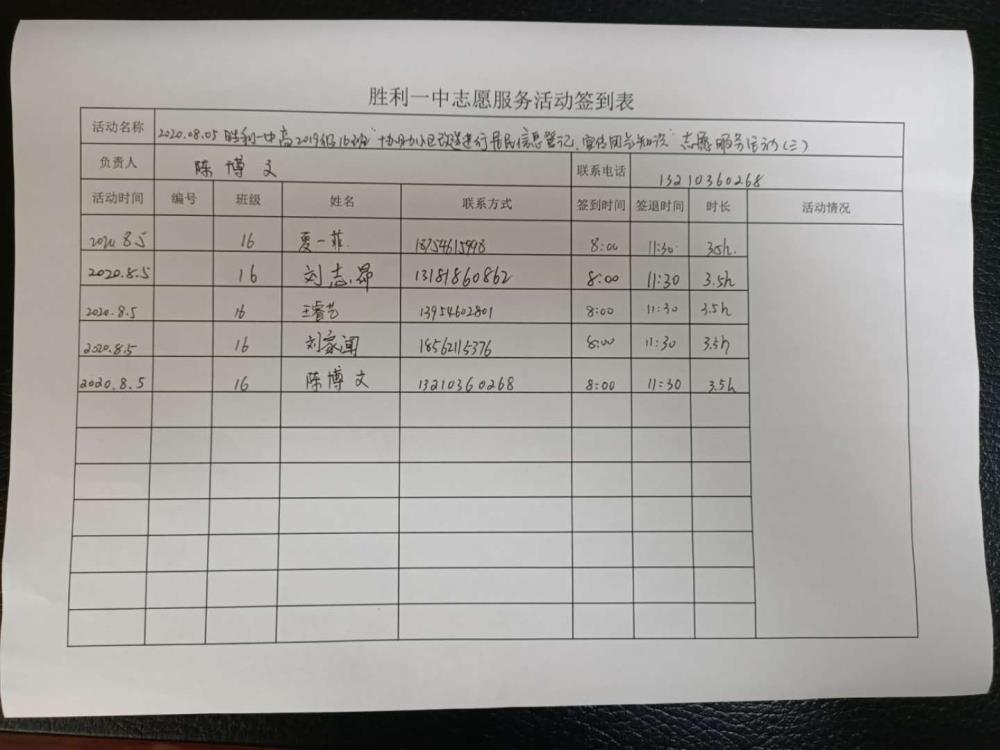 胜利一中志愿服务活动签到表
活动名称 2020.08.05 胜利一中高2019级16班"协助小区改造进行居民信息登记,宣传团员知识"志愿服务活动(三)
负责人 陈博文 联系电话 13210360268
活动时间 编号 班级 姓名 联系方式 签到时间 签退时间 时长 活动情况
2020.8.5 16 夏一菲 18754615998 8:00 11:30 3.5h.
2020.8.5 16 刘志昂 13181860862 8:00 11:30 3.5h
2020.8.5 16 王睿艺 13954602801 8:00 11:30 3.5h
2020.8.5 16 刘家闻 18562115376 8:00 11:30 3.5h
2020.8.5 16 陈博文 13210360268 8:00 11:30 3.5h